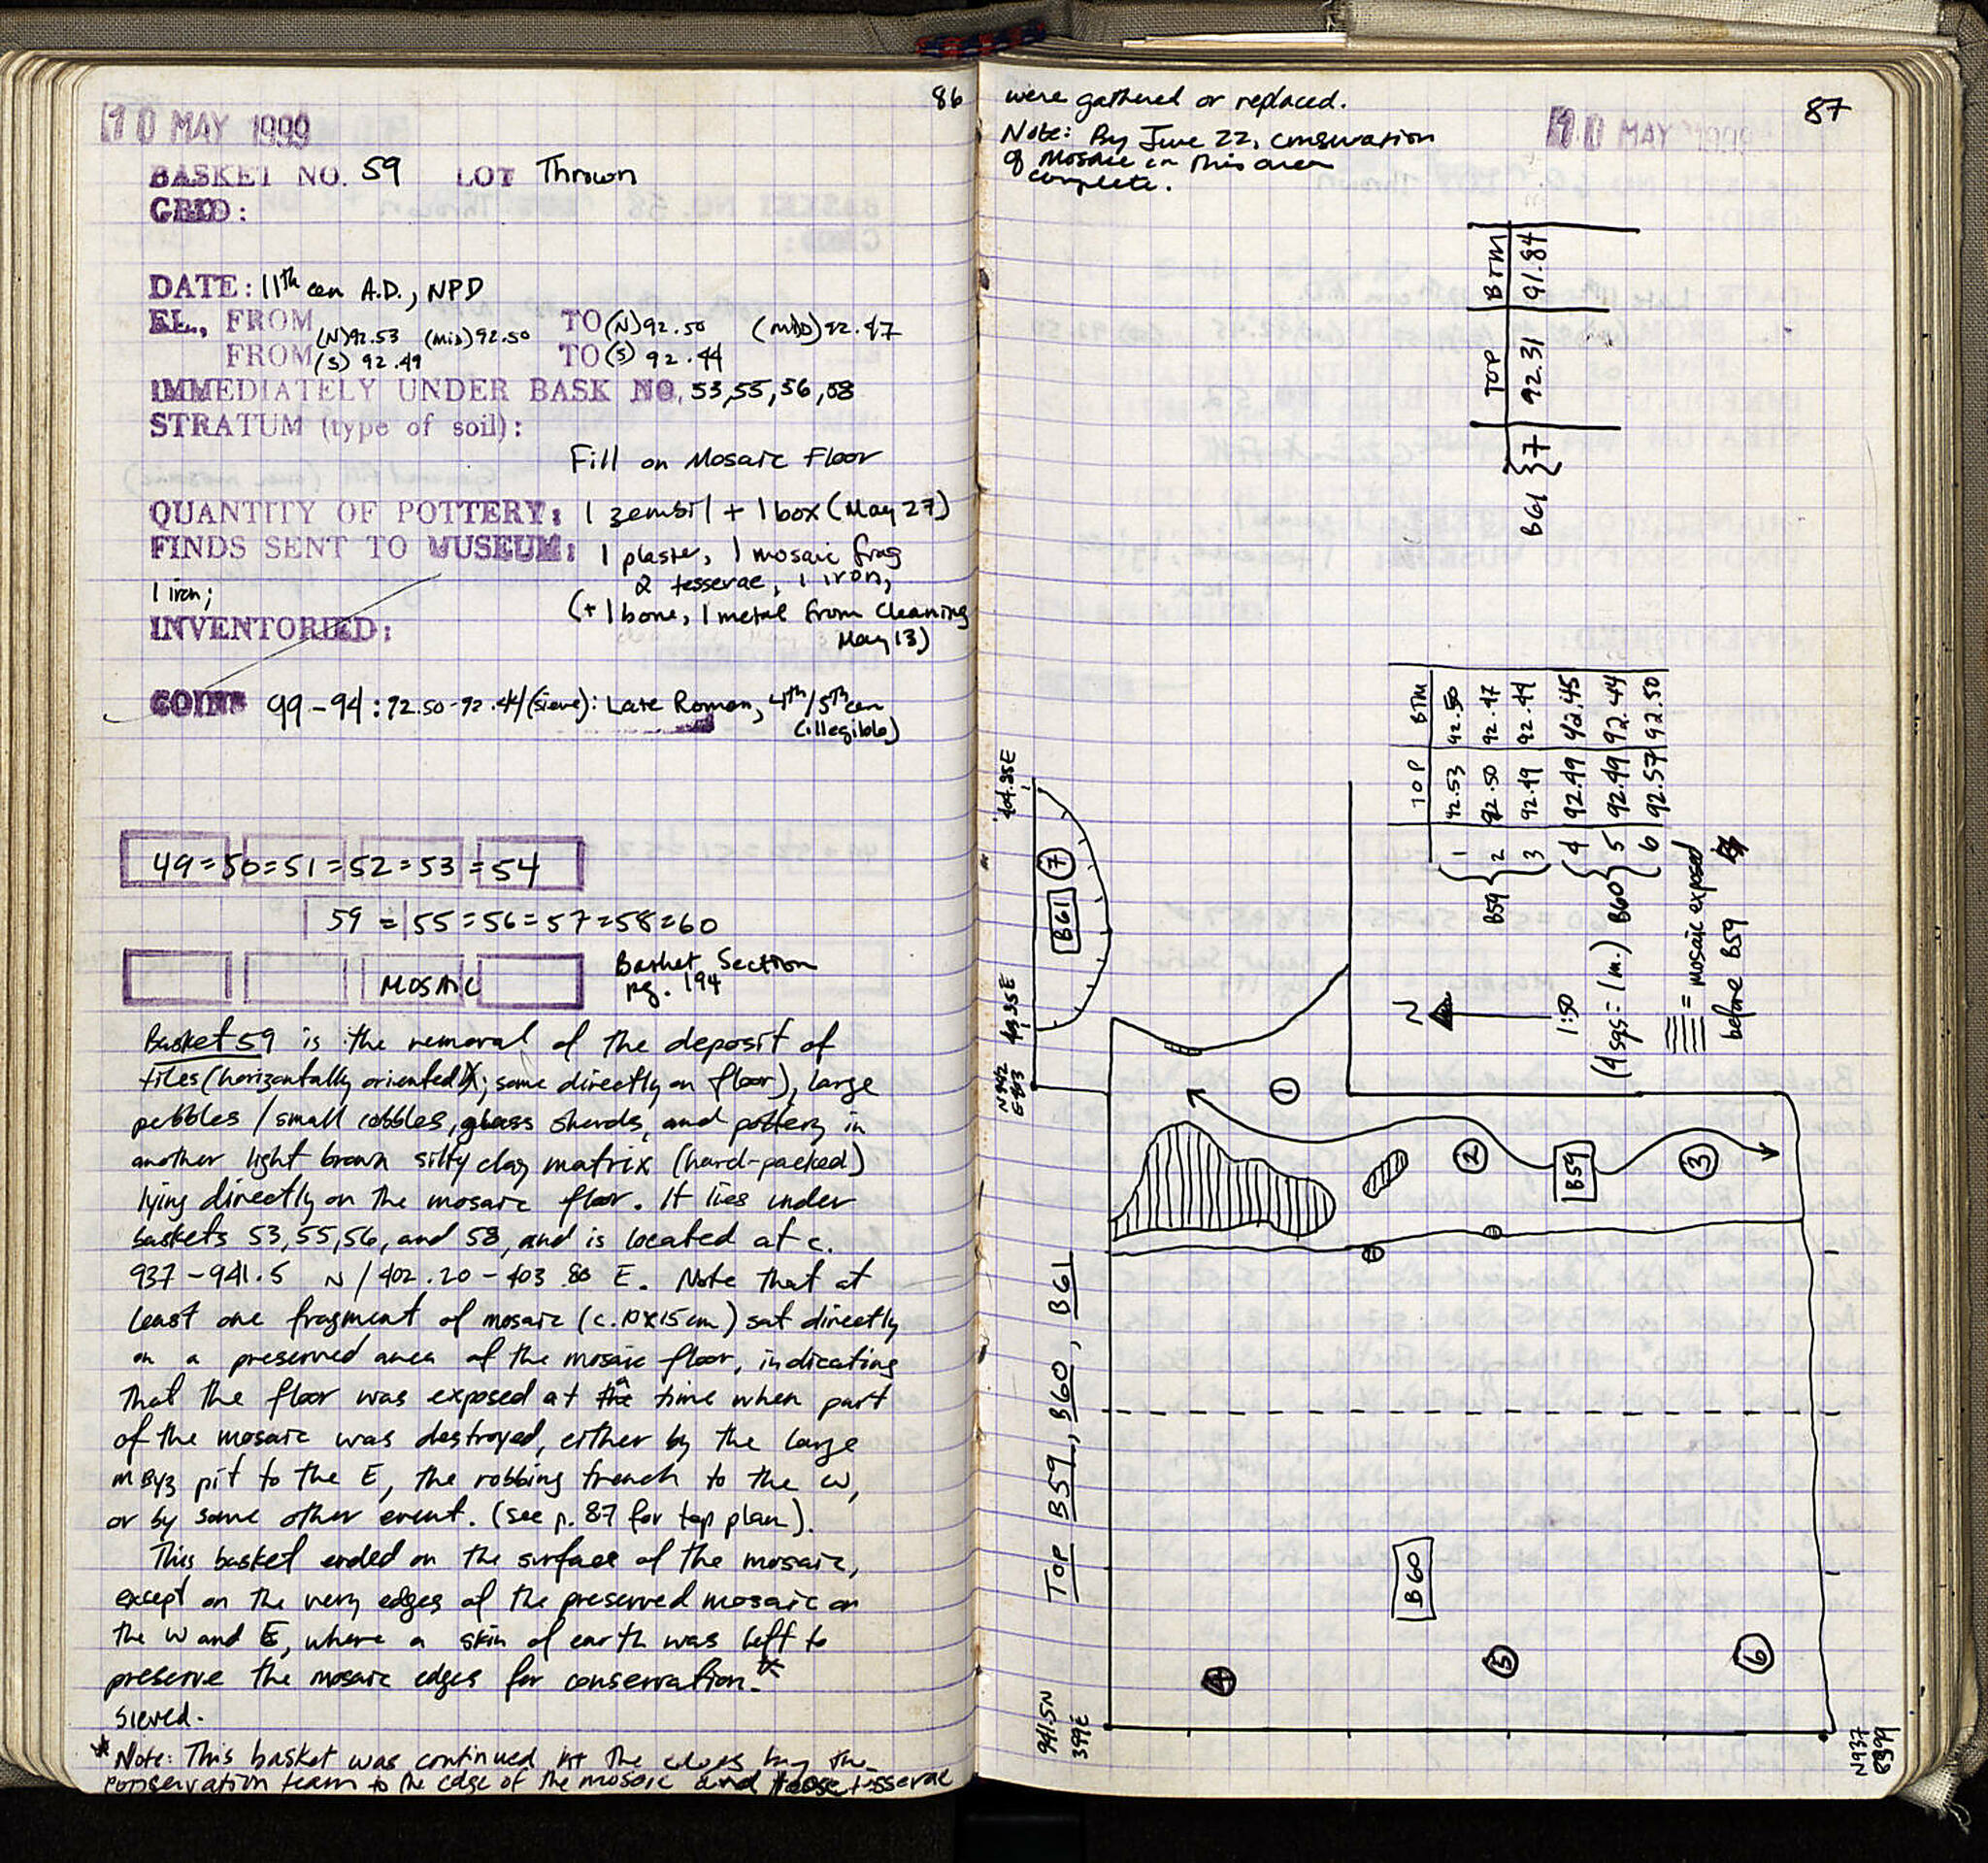 86
10 MAY 1999
BASKET NO. 59 LOT Thrown
GRID:
DATE: 11th cen A.D., NPD
EL., FROM (N)92.53 (Mid)92.50 TO (N)92.50 (Mid)92.47
FROM (S) 92.49 TO (S) 92.44
IMMEDIATELY UNDER BASK NO. 53,55,56,58
STRATUM (type of soil):
Fill on Mosaic Floor
QUANTITY OF POTTERY: 1 zembil + 1 box (May 27)
FINDS SENT TO MUSEUM: 1 plaster, 1 mosaic frag
2 tesserae, 1 iron,
1 iron;
(+ 1 bone, 1 metal from cleaning
May 13)
INVENTORIED:
COINS 99-94: 92.50-92.44 (sieve): Late Roman, 4th/5th cen
(illegible)
49=50=51=52=53=54
59=55=56=57=58=60
MOSAIC
Basket Section
pg. 194
Basket 59 is the removal of the deposit of
tiles (horizontally oriented; some directly on floor), large
pebbles / small cobbles, glass sherds, and pottery in
another light brown silty clay matrix (hard-packed)
lying directly on the mosaic floor. It lies under
baskets 53, 55, 56, and 58, and is located at c.
937-941.5 N / 402.20-403.80 E. Note that at
least one fragment of mosaic (c. 10x15 cm) sat directly
on a preserved area of the mosaic floor, indicating
that the floor was exposed at the time when part
of the mosaic was destroyed, either by the large
m Byz pit to the E, the robbing trench to the W,
or by some other event. (see p. 87 for top plan).
This basket ended on the surface of the mosaic,
except on the very edges of the preserved mosaic on
the W and E, where a skin of earth was left to
preserve the mosaic edges for conservation.*
Sieved.
* Note: This basket was continued at the edges by the
conservation team to the edge of the mosaic and loose tesserae
87
were gathered or replaced.
10 MAY 1999
Note: By June 22, conservation
of Mosaic in this area
complete.
TOP BTM
B61 } 7 92.31 91.84
TOP BTM
B59 1 92.53 92.50
2 92.50 92.47
3 92.49 92.44
B60 4 92.49 92.45
5 92.49 92.44
6 92.57 92.50
= mosaic exposed
before B59
N
1:50
(4 sqs = 1 m.)
404.95E
B61 7
N942
E403
1
2
B59
3
TOP B59, B60, B61
B60
4
5
6
941.5N
399E
N937
E399